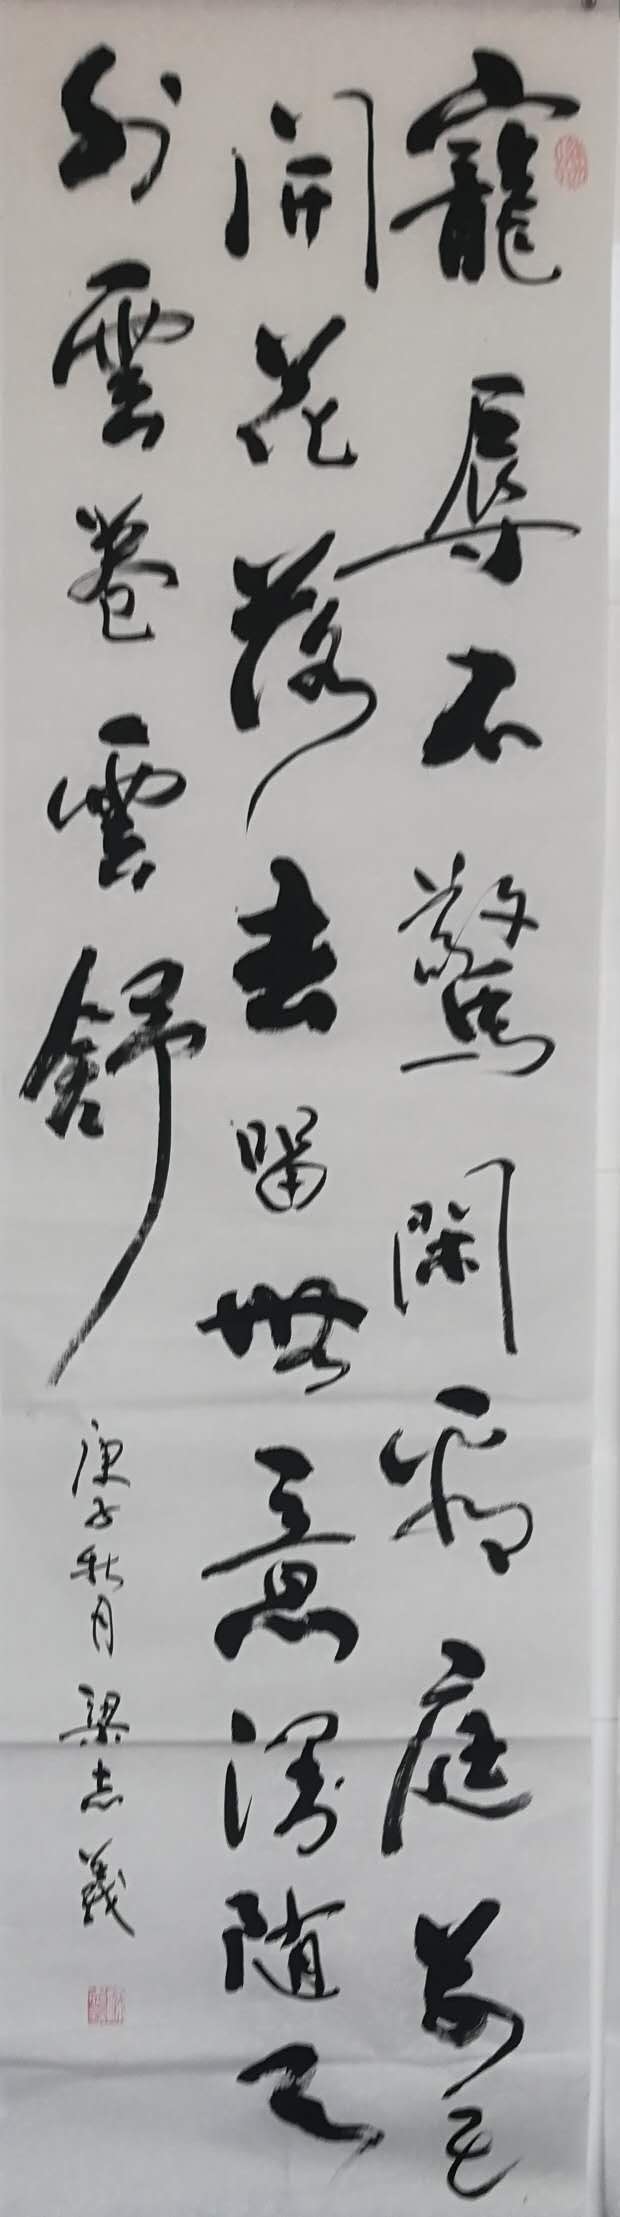 寵辱不驚閑看庭前花
開花落去留無意漫随天
外雲卷雲舒
庚子秋月 梁志義